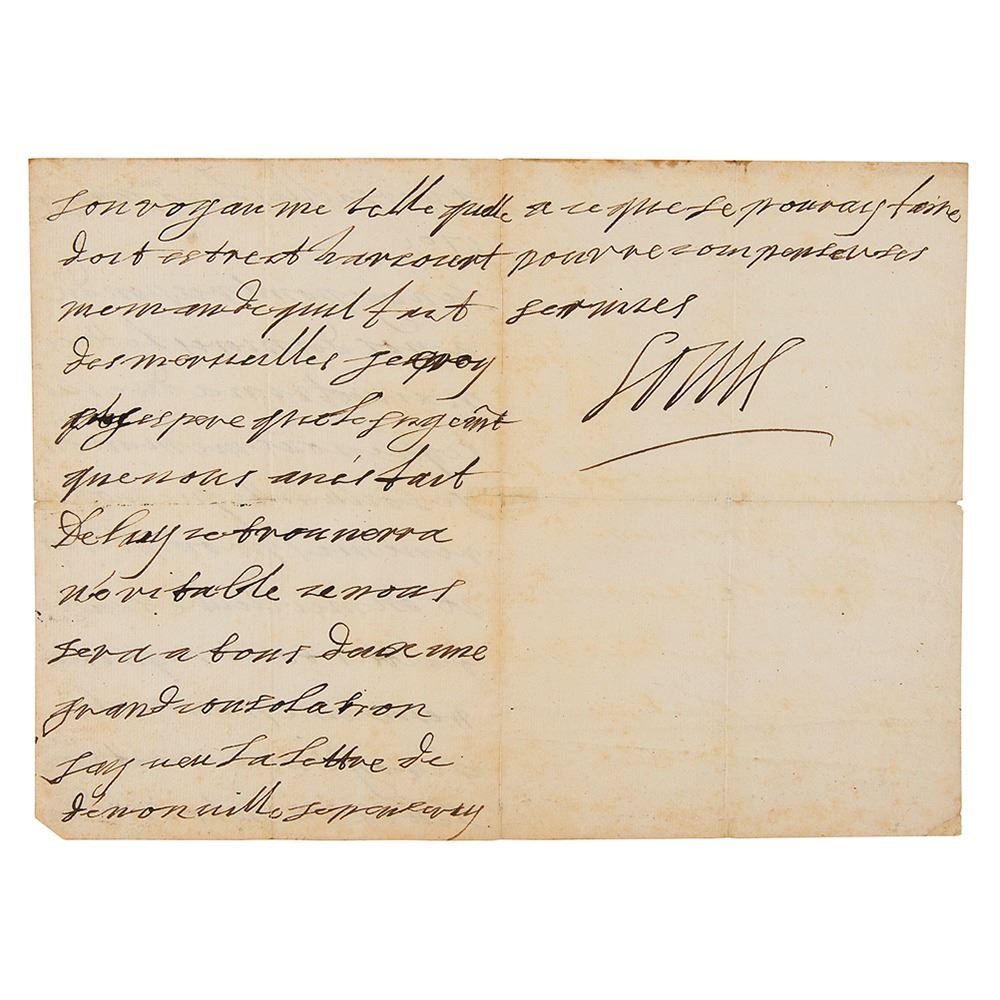 son royaume telle quelle
doit estre et harcourt
me mande quil fait
des merueilles je croy
espere que le jugemt
que nous auiés fait
de luy ce trouuerra
veritable ce nous
sera a tous deux une
grand consolation
jay ueu la lettre de
denonuille je penseray
a ce que je pouray faire
pour recompenser ses
seruices
Louis